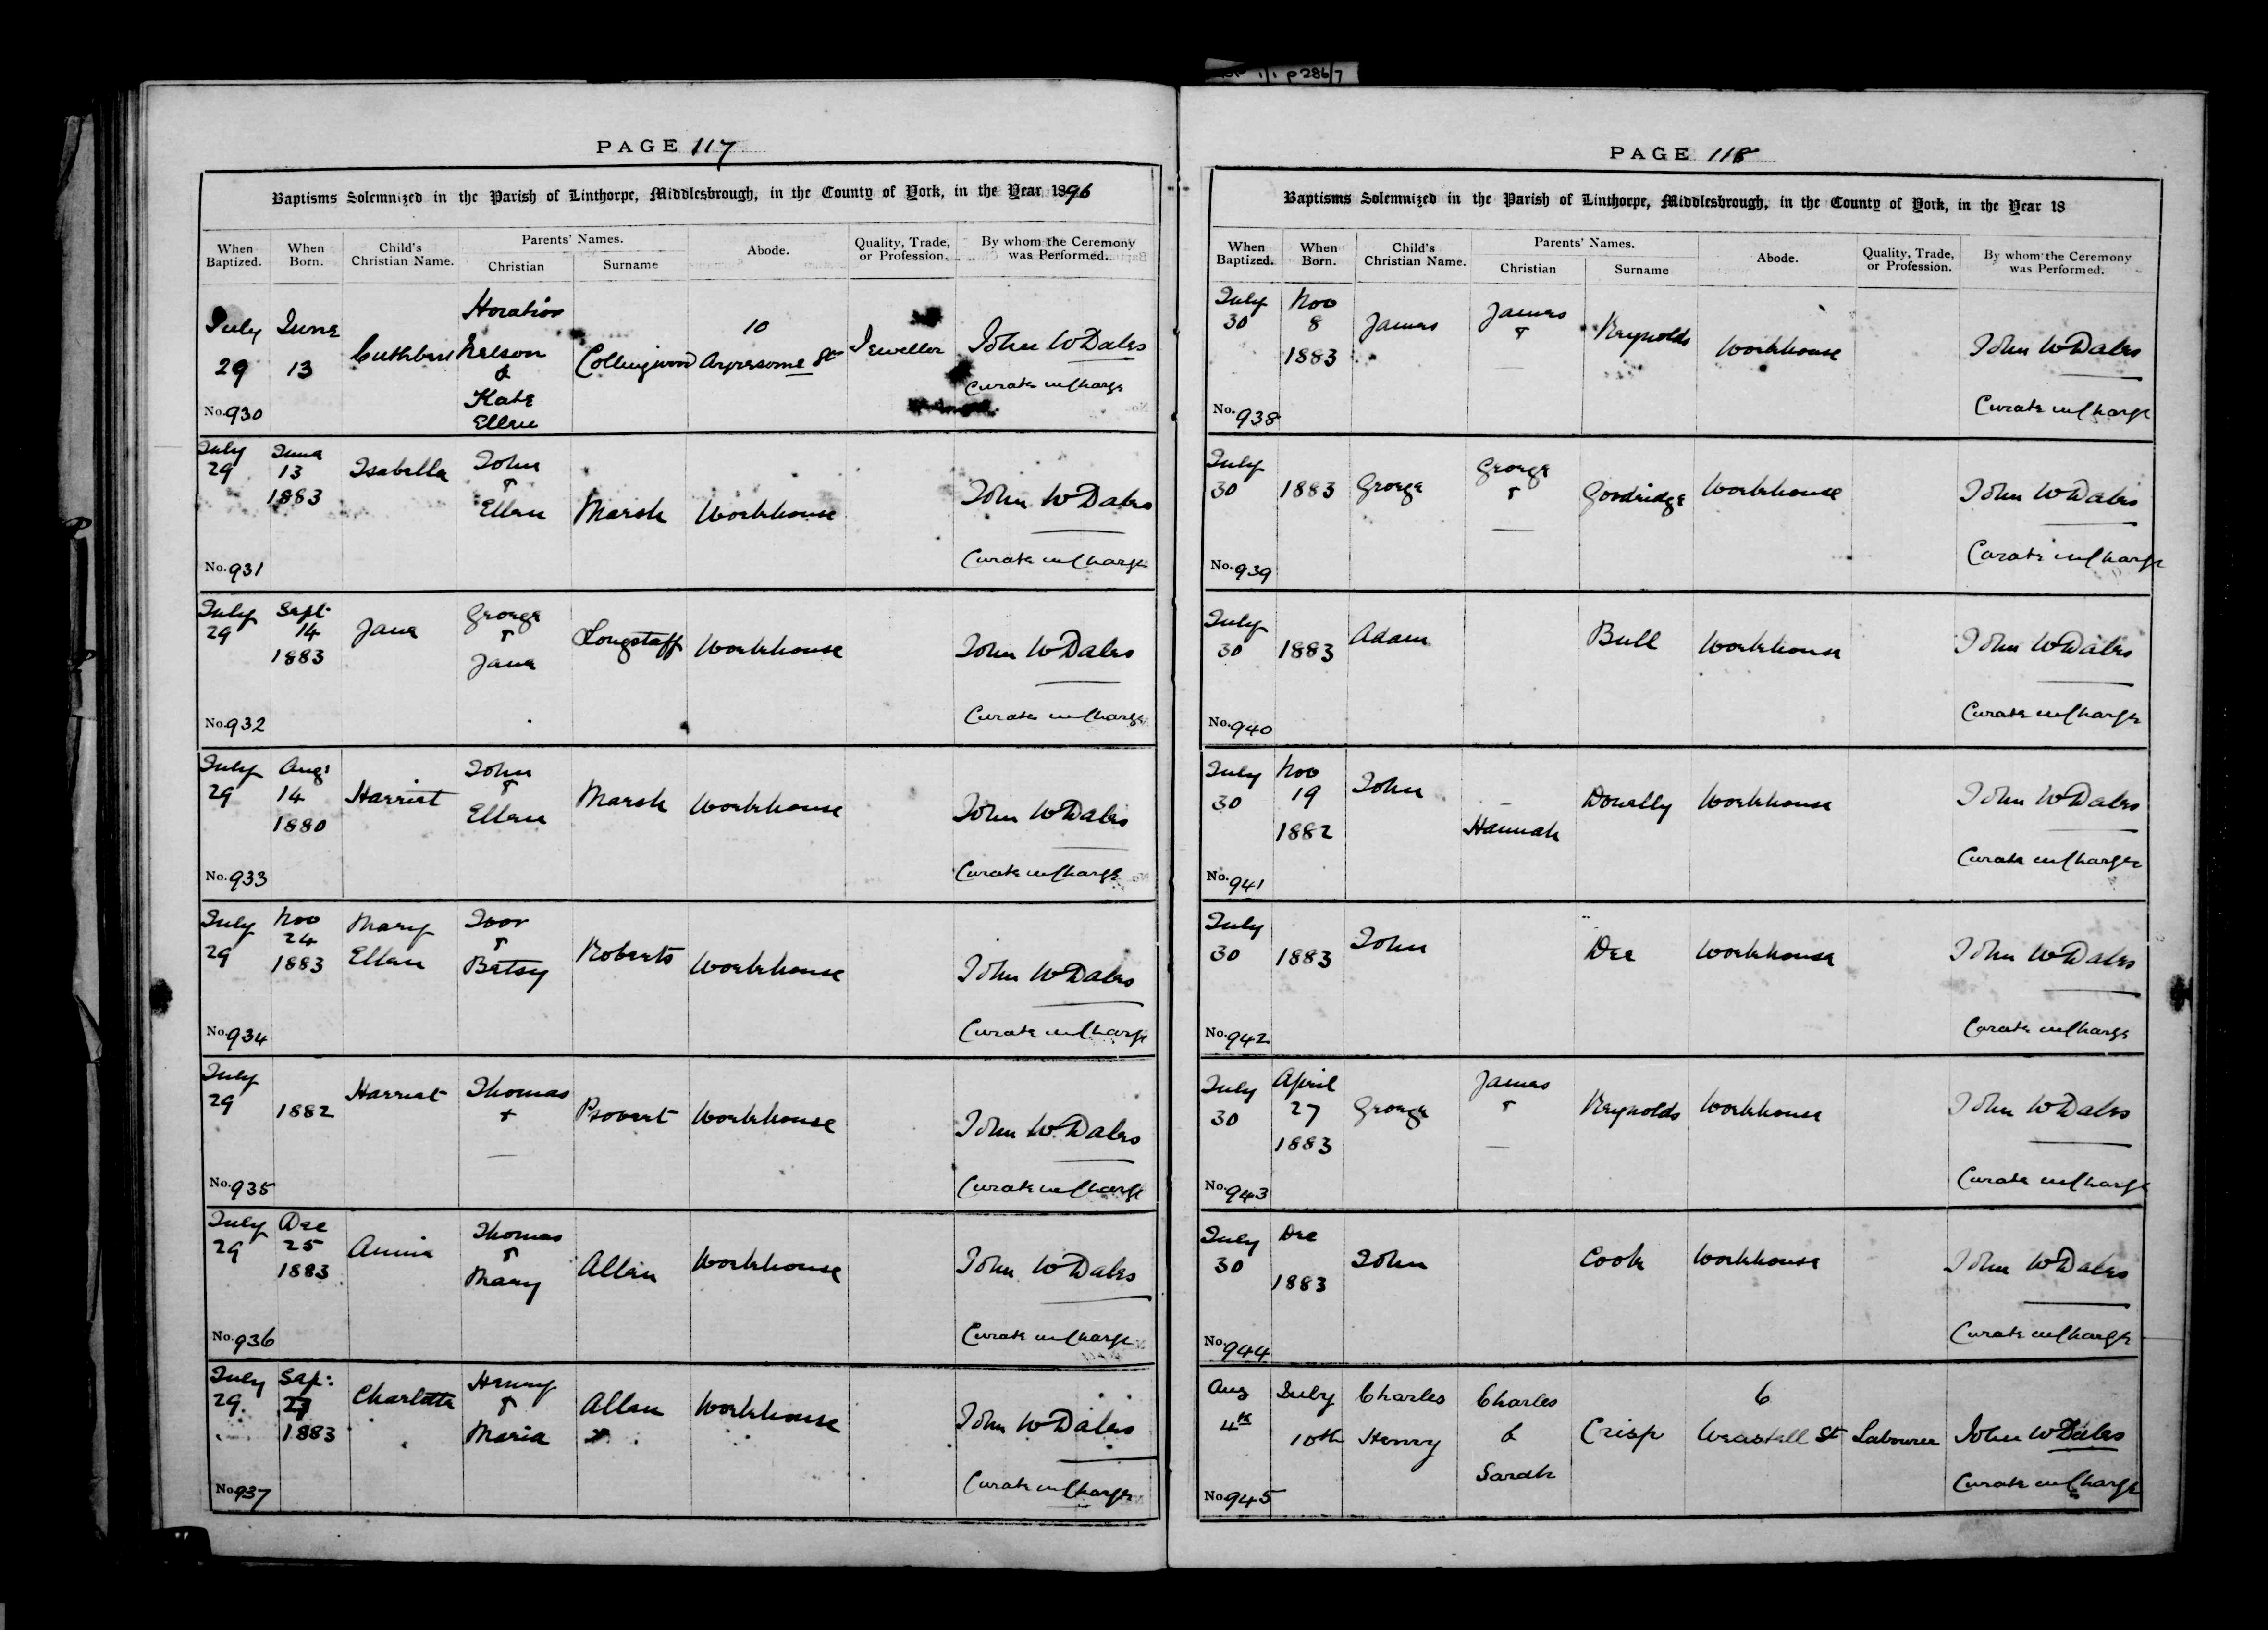 1/1 p286/7
PAGE 117
Baptisms Solemnized in the Parish of Linthorpe, Middlesbrough, in the County of York, in the Year 1896
When Baptized. When Born. Child's Christian Name. Parents' Names. Christian Surname Abode. Quality, Trade, or Profession. By whom the Ceremony was Performed.
July 29 June 13 Cuthbert Horatio Nelson & Kate Ellen Collingwood 10 Ayresome St Jeweller John W Dales Curate in Charge
No. 930
July 29 June 13 1883 Isabella John + Ellen Marsh Workhouse John W Dales Curate in Charge
No. 931
July 29 Sept 14 1883 Jane George + Jane Longstaff Workhouse John W Dales Curate in Charge
No. 932
July 29 Aug: 14 1880 Harriet John + Ellen Marsh Workhouse John W Dales Curate in Charge
No. 933
July 29 Nov 24 1883 Mary Ellen Ivor + Betsy Roberts Workhouse John W Dales Curate in Charge
No. 934
July 29 1882 Harriet Thomas + — Provert Workhouse John W Dales Curate in Charge
No. 935
July 29 Dec 25 1883 Annie Thomas + Mary Allan Workhouse John W Dales Curate in Charge
No. 936
July 29 Sep: 1883 Charlotte Henry + Maria Allan Workhouse John W Dales Curate in Charge
No. 937
PAGE 118
Baptisms Solemnized in the Parish of Linthorpe, Middlesbrough, in the County of York, in the Year 18
When Baptized. When Born. Child's Christian Name. Parents' Names. Christian Surname Abode. Quality, Trade, or Profession. By whom the Ceremony was Performed.
July 30 Nov 8 1883 James James + — Reynolds Workhouse John W Dales Curate in Charge
No. 938
July 30 1883 George George + — Goodridge Workhouse John W Dales Curate in Charge
No. 939
July 30 1883 Adam Bull Workhouse John W Dales Curate in Charge
No. 940
July 30 Nov 19 1882 John — Hannah Donelly Workhouse John W Dales Curate in Charge
No. 941
July 30 1883 John Dee Workhouse John W Dales Curate in Charge
No. 942
July 30 April 27 1883 George James + — Reynolds Workhouse John W Dales Curate in Charge
No. 943
July 30 Dec 1883 John Cook Workhouse John W Dales Curate in Charge
No. 944
Aug 4th July 10th Charles Henry Charles & Sarah Crisp 6 St Labourer John W Dales Curate in Charge
No. 945